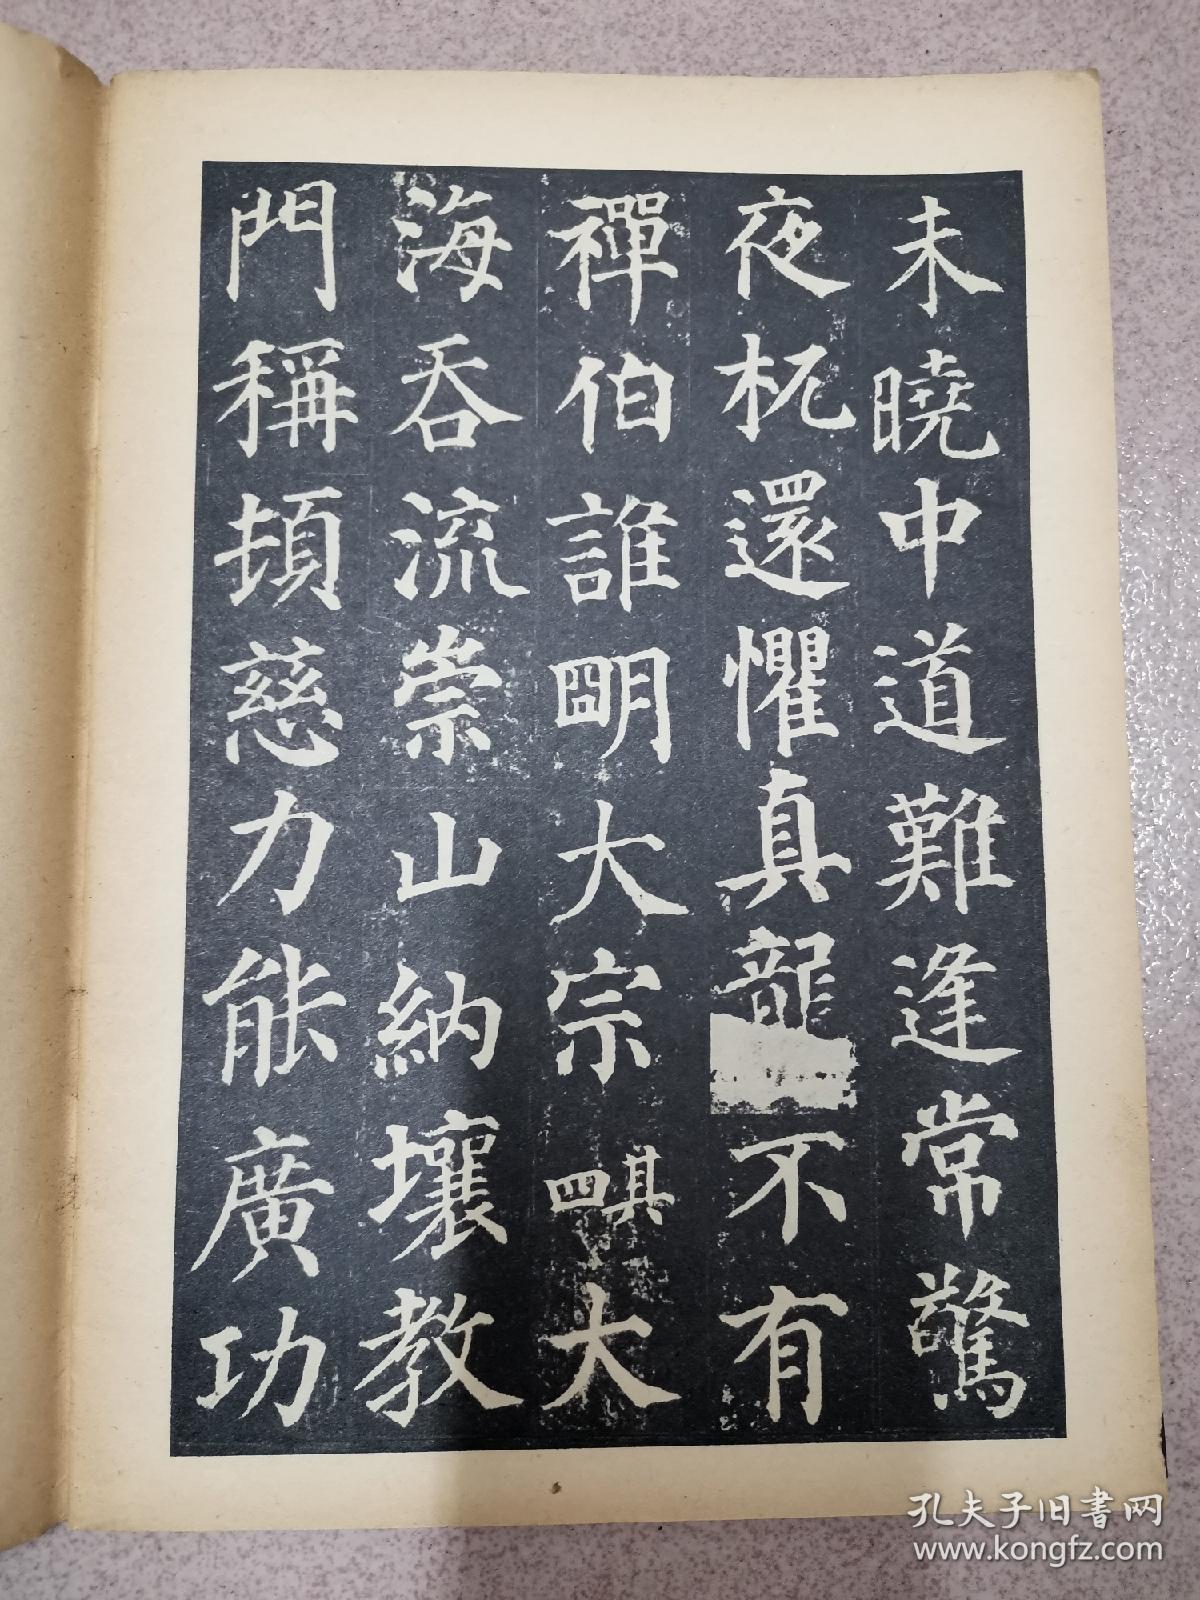 未曉中道難逢常驚
夜杌還懼真龍不有
禪伯誰明大宗其四大
海吞流崇山納壤教
門稱頓慈力能廣功
孔夫子旧書网
www.kongfz.com